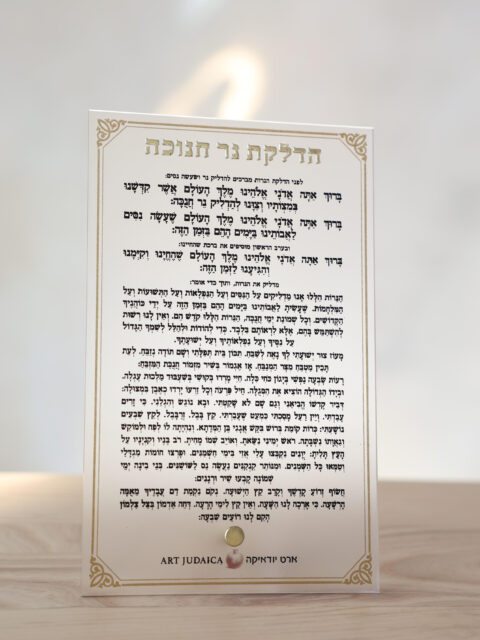 הדלקת נר חנוכה
לפני הדלקת הנרות מברכים להדליק נר ושעשה נסים:
בָּרוּךְ אַתָּה אֲדֹנָי אֱלֹהֵינוּ מֶלֶךְ הָעוֹלָם אֲשֶׁר קִדְּשָׁנוּ
בְּמִצְוֹתָיו וְצִוָּנוּ לְהַדְלִיק נֵר חֲנֻכָּה:
בָּרוּךְ אַתָּה אֲדֹנָי אֱלֹהֵינוּ מֶלֶךְ הָעוֹלָם שֶׁעָשָׂה נִסִּים
לַאֲבוֹתֵינוּ בַּיָּמִים הָהֵם בַּזְּמַן הַזֶּה:
ובערב הראשון מוסיפים את ברכת שהחיינו:
בָּרוּךְ אַתָּה אֲדֹנָי אֱלֹהֵינוּ מֶלֶךְ הָעוֹלָם שֶׁהֶחֱיָנוּ וְקִיְּמָנוּ
וְהִגִּיעָנוּ לַזְּמַן הַזֶּה:
מדליק את הנרות, ותוך כדי אומר:
הַנֵּרוֹת הַלָּלוּ אָנוּ מַדְלִיקִים עַל הַנִּסִּים וְעַל הַנִּפְלָאוֹת וְעַל הַתְּשׁוּעוֹת וְעַל
הַמִּלְחָמוֹת. שֶׁעָשִׂיתָ לַאֲבוֹתֵינוּ בַּיָּמִים הָהֵם בַּזְּמַן הַזֶּה עַל יְדֵי כֹּהֲנֶיךָ
הַקְּדוֹשִׁים. וְכָל שְׁמוֹנַת יְמֵי חֲנֻכָּה, הַנֵּרוֹת הַלָּלוּ קֹדֶשׁ הֵם. וְאֵין לָנוּ רְשׁוּת
לְהִשְׁתַּמֵּשׁ בָּהֶם, אֶלָּא לִרְאוֹתָם בִּלְבַד. כְּדֵי לְהוֹדוֹת וּלְהַלֵּל לְשִׁמְךָ הַגָּדוֹל
עַל נִסֶּיךָ וְעַל נִפְלְאוֹתֶיךָ וְעַל יְשׁוּעָתֶךָ.
מָעוֹז צוּר יְשׁוּעָתִי לְךָ נָאֶה לְשַׁבֵּחַ. תִּכּוֹן בֵּית תְּפִלָּתִי וְשָׁם תּוֹדָה נְזַבֵּחַ. לְעֵת
תָּכִין מַטְבֵּחַ מִצָּר הַמְנַבֵּחַ. אָז אֶגְמוֹר בְּשִׁיר מִזְמוֹר חֲנֻכַּת הַמִּזְבֵּחַ:
רָעוֹת שָׂבְעָה נַפְשִׁי בְּיָגוֹן כֹּחִי כָּלָה. חַיַּי מֵרְרוּ בְּקוּשִׁי בְּשִׁעְבּוּד מַלְכוּת עֶגְלָה.
וּבְיָדוֹ הַגְּדוֹלָה הוֹצִיא אֶת הַסְּגֻלָּה. חֵיל פַּרְעֹה וְכָל זַרְעוֹ יָרְדוּ כְאֶבֶן בִּמְצוּלָה:
דְּבִיר קָדְשׁוֹ הֱבִיאַנִי וְגַם שָׁם לֹא שָׁקַטְתִּי. וּבָא נוֹגֵשׂ וְהִגְלַנִי. כִּי זָרִים
עָבַדְתִּי. וְיֵין רַעַל מָסַכְתִּי כִּמְעַט שֶׁעָבַרְתִּי. קֵץ בָּבֶל. זְרֻבָּבֶל. לְקֵץ שִׁבְעִים
נוֹשַׁעְתִּי: כְּרוֹת קוֹמַת בְּרוֹשׁ בִּקֵּשׁ אֲגָגִי בֶּן הַמְּדָתָא. וְנִהְיָתָה לוֹ לְפַח וּלְמוֹקֵשׁ
וְגַאֲוָתוֹ נִשְׁבָּתָה. רֹאשׁ יְמִינִי נִשֵּׂאתָ. וְאוֹיֵב שְׁמוֹ מָחִיתָ. רֹב בָּנָיו וְקִנְיָנָיו עַל
הָעֵץ תָּלִיתָ: יְוָנִים נִקְבְּצוּ עָלַי אֲזַי בִּימֵי חַשְׁמַנִּים. וּפָרְצוּ חוֹמוֹת מִגְדָּלַי
וְטִמְּאוּ כָּל הַשְּׁמָנִים. וּמִנּוֹתַר קַנְקַנִּים נַעֲשָׂה נֵס לַשּׁוֹשַׁנִּים. בְּנֵי בִינָה יְמֵי
שְׁמוֹנָה קָבְעוּ שִׁיר וּרְנָנִים:
חֲשׂוֹף זְרוֹעַ קָדְשֶׁךָ וְקָרֵב קֵץ הַיְשׁוּעָה. נְקֹם נִקְמַת דַּם עֲבָדֶיךָ מֵאֻמָּה
הָרְשָׁעָה. כִּי אָרְכָה לָנוּ הַשָּׁעָה. וְאֵין קֵץ לִימֵי הָרָעָה. דְּחֵה אַדְמוֹן בְּצֵל צַלְמוֹן
הָקֵם לָנוּ רוֹעִים שִׁבְעָה:
ART JUDAICA ארט יודאיקה